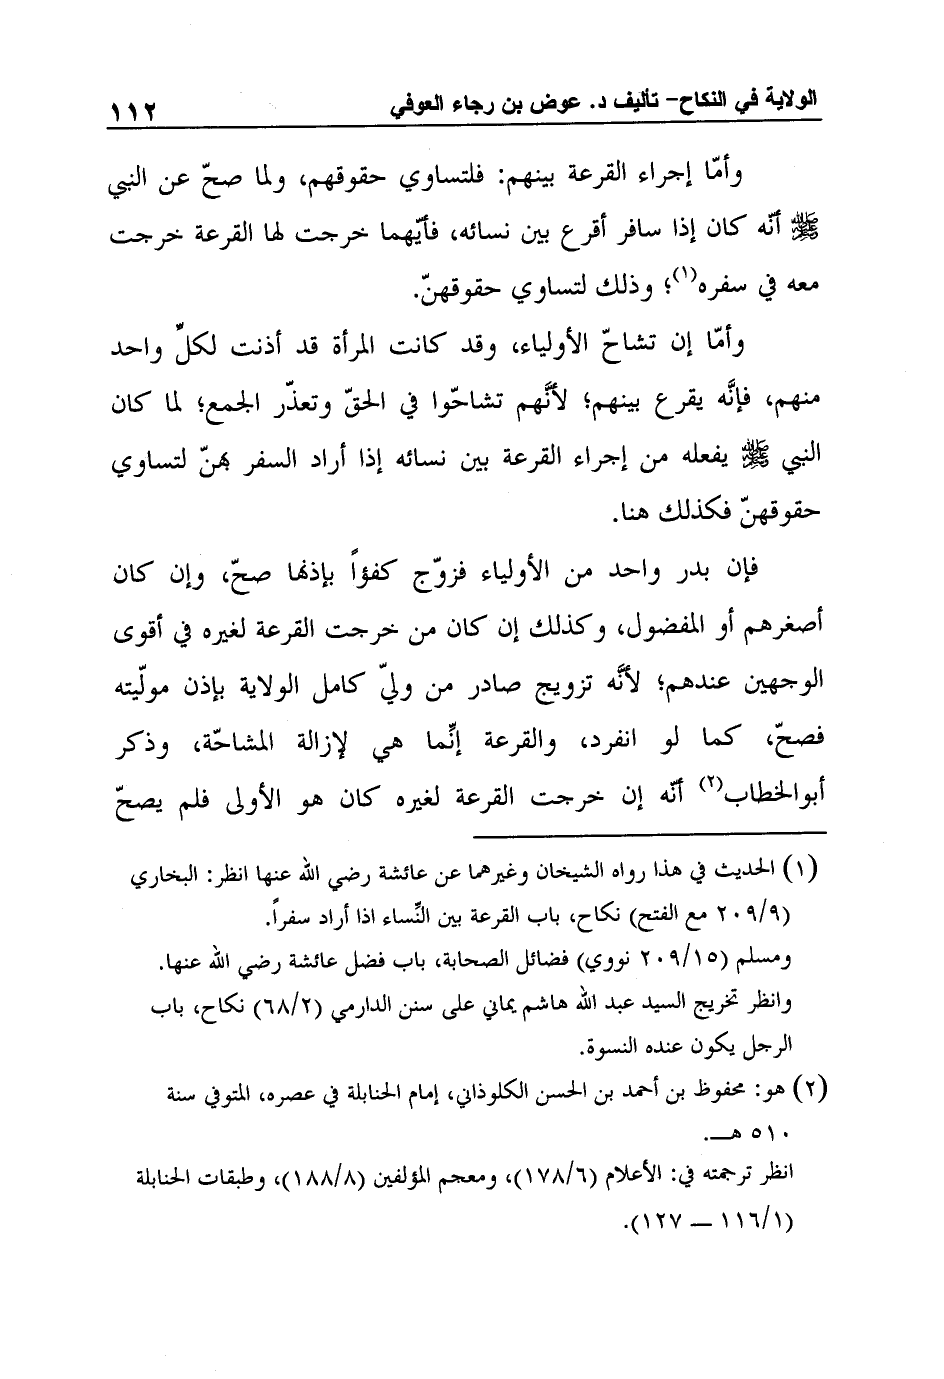 الولاية في النكاح- تأليف د. عوض بن رجاء العوفي ١١٢
وأمّا إجراء القرعة بينهم: فلتساوي حقوقهم، ولما صحّ عن النبي
ﷺ أنّه كان إذا سافر أقرع بين نسائه، فأيّهما خرجت لها القرعة خرجت
معه في سفره(١)؛ وذلك لتساوي حقوقهنّ.
وأمّا إن تشاحّ الأولياء، وقد كانت المرأة قد أذنت لكلِّ واحد
منهم، فإنَّه يقرع بينهم؛ لأنَّهم تشاحّوا في الحقّ وتعذّر الجمع؛ لما كان
النبي ﷺ يفعله من إجراء القرعة بين نسائه إذا أراد السفر بهنّ لتساوي
حقوقهنّ فكذلك هنا.
فإن بدر واحد من الأولياء فزوّج كفؤاً بإذنها صحّ، وإن كان
أصغرهم أو المفضول، وكذلك إن كان من خرجت القرعة لغيره في أقوى
الوجهين عندهم؛ لأنَّه تزويج صادر من وليّ كامل الولاية بإذن مولّيته
فصحّ، كما لو انفرد، والقرعة إنَّما هي لإزالة المشاحّة، وذكر
أبوالخطاب(٢) أنّه إن خرجت القرعة لغيره كان هو الأولى فلم يصحّ
(١) الحديث في هذا رواه الشيخان وغيرهما عن عائشة رضي الله عنها انظر: البخاري
(٢٠٩/٩ مع الفتح) نكاح، باب القرعة بين النِّساء اذا أراد سفراً.
ومسلم (٢٠٩/١٥ نووي) فضائل الصحابة، باب فضل عائشة رضي الله عنها.
وانظر تخريج السيد عبد الله هاشم يماني على سنن الدارمي (٦٨/٢) نكاح، باب
الرجل يكون عنده النسوة.
(٢) هو: محفوظ بن أحمد بن الحسن الكلوذاني، إمام الحنابلة في عصره، المتوفي سنة
٥١٠ هـ.
انظر ترجمته في: الأعلام (١٧٨/٦)، ومعجم المؤلفين (١٨٨/٨)، وطبقات الحنابلة
(١١٦/١ – ١٢٧).